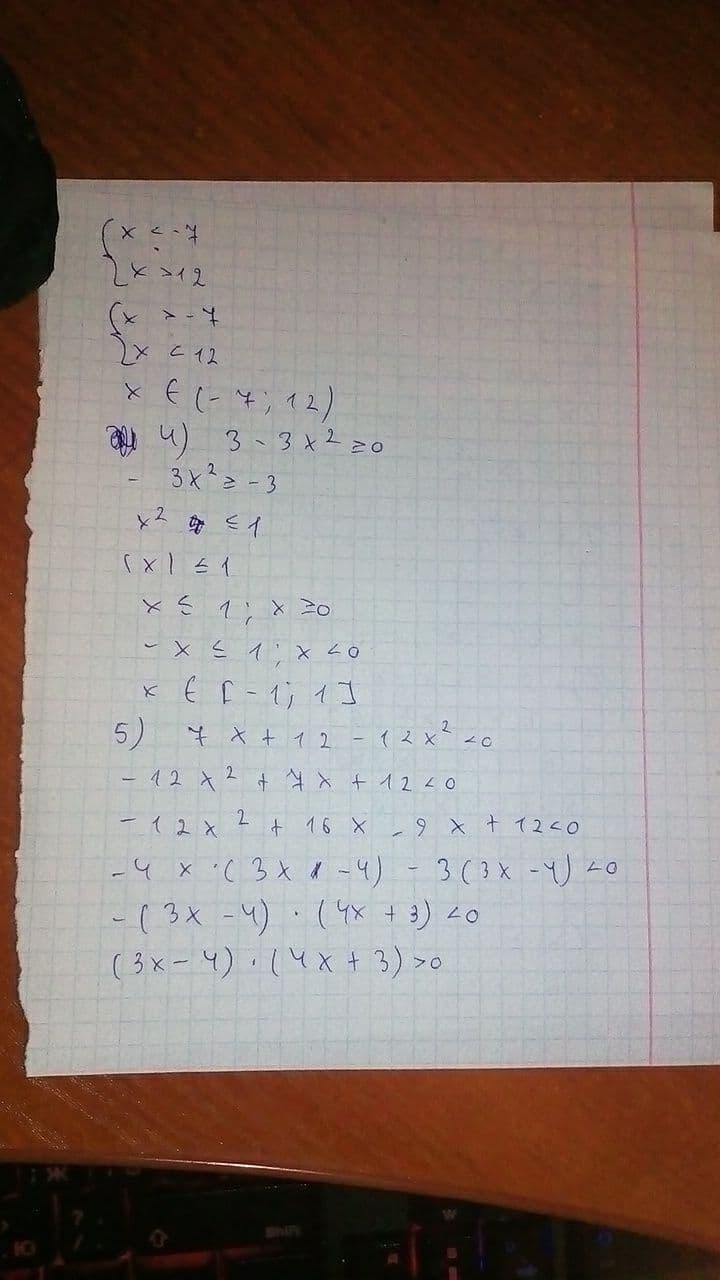 {x < -7
{x > 12
{x > -7
{x < 12
x ∈ (-7; 12)
4) 3 - 3x² ≥ 0
- 3x² ≥ -3
x² ≤ 1
|x| ≤ 1
x ≤ 1; x ≥ 0
- x ≤ 1; x < 0
x ∈ [-1; 1]
5) 7x + 12 - 12x² < 0
- 12x² + 7x + 12 < 0
- 12x² + 16x - 9x + 12 < 0
- 4x · (3x - 4) - 3(3x - 4) < 0
- (3x - 4) · (4x + 3) < 0
(3x - 4) · (4x + 3) > 0
; Ж
Ю
?
W